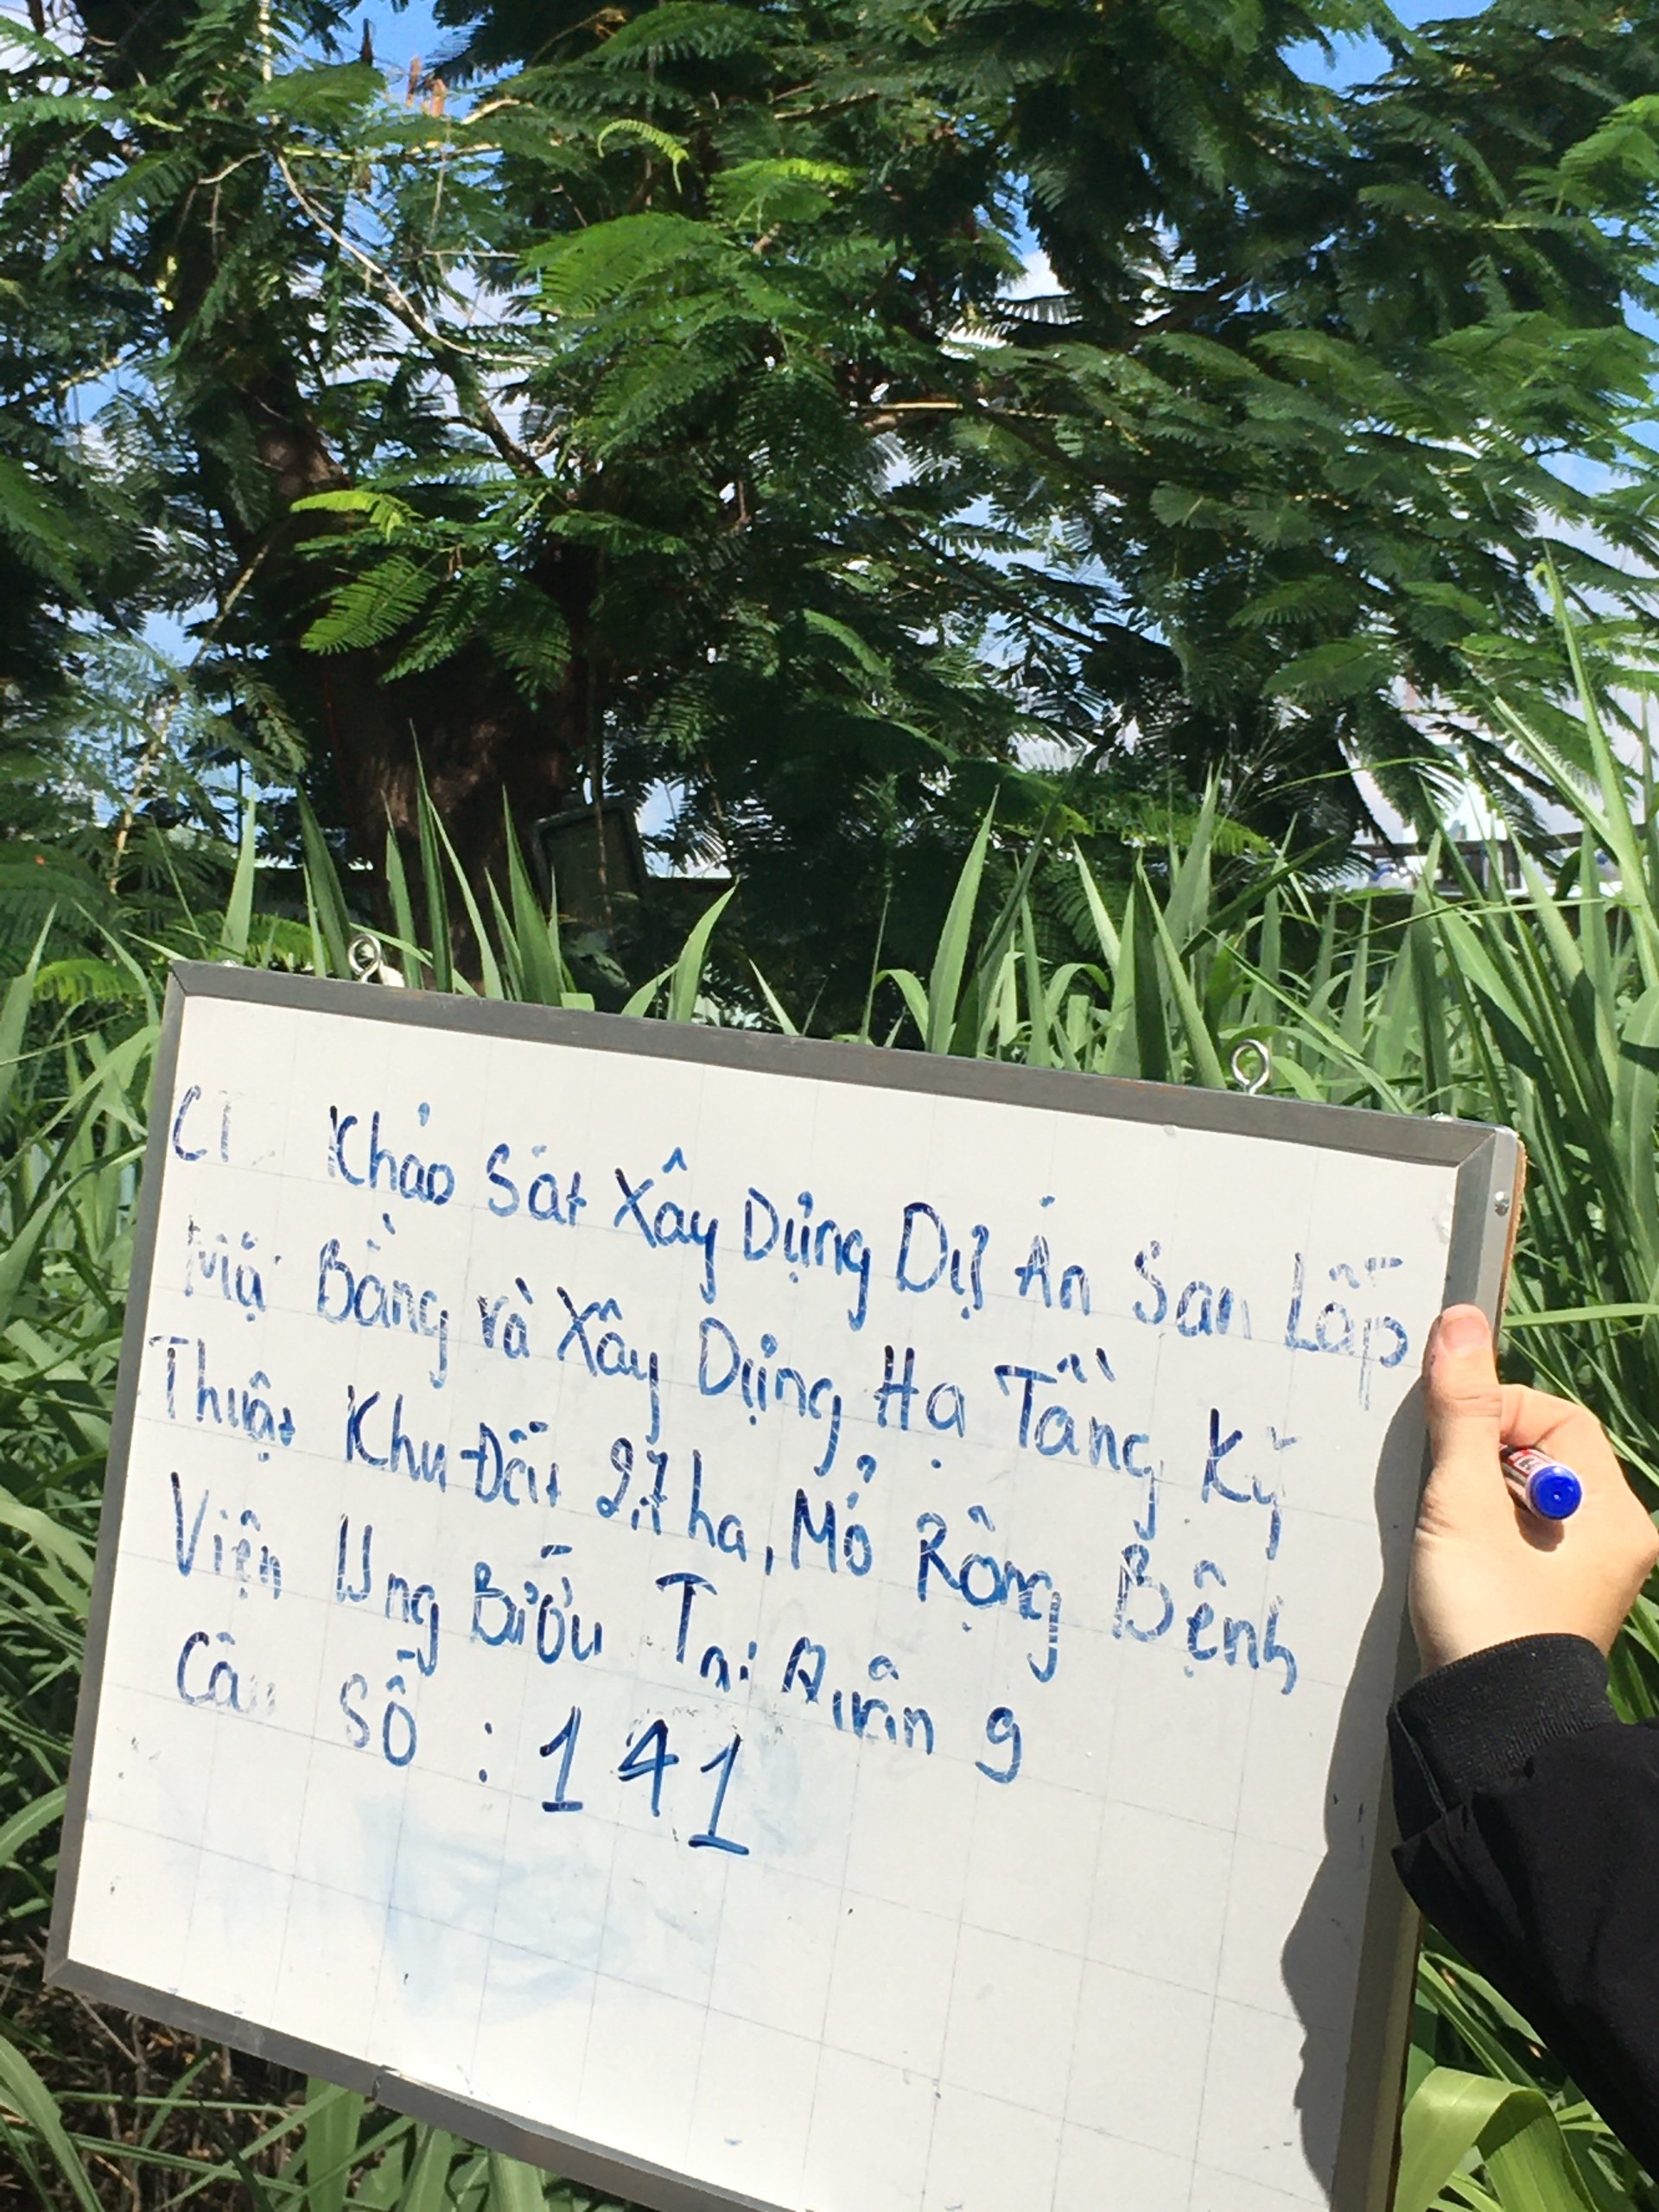 CT Khảo Sát Xây Dựng Dự Án San Lấp
Bằng và Xây Dựng Hạ Tầng Kỹ
Thuật Khu Đất 2,7 ha, Mở Rộng Bệnh
Viện Ung Bướu Tại Quận 9
Số : 141